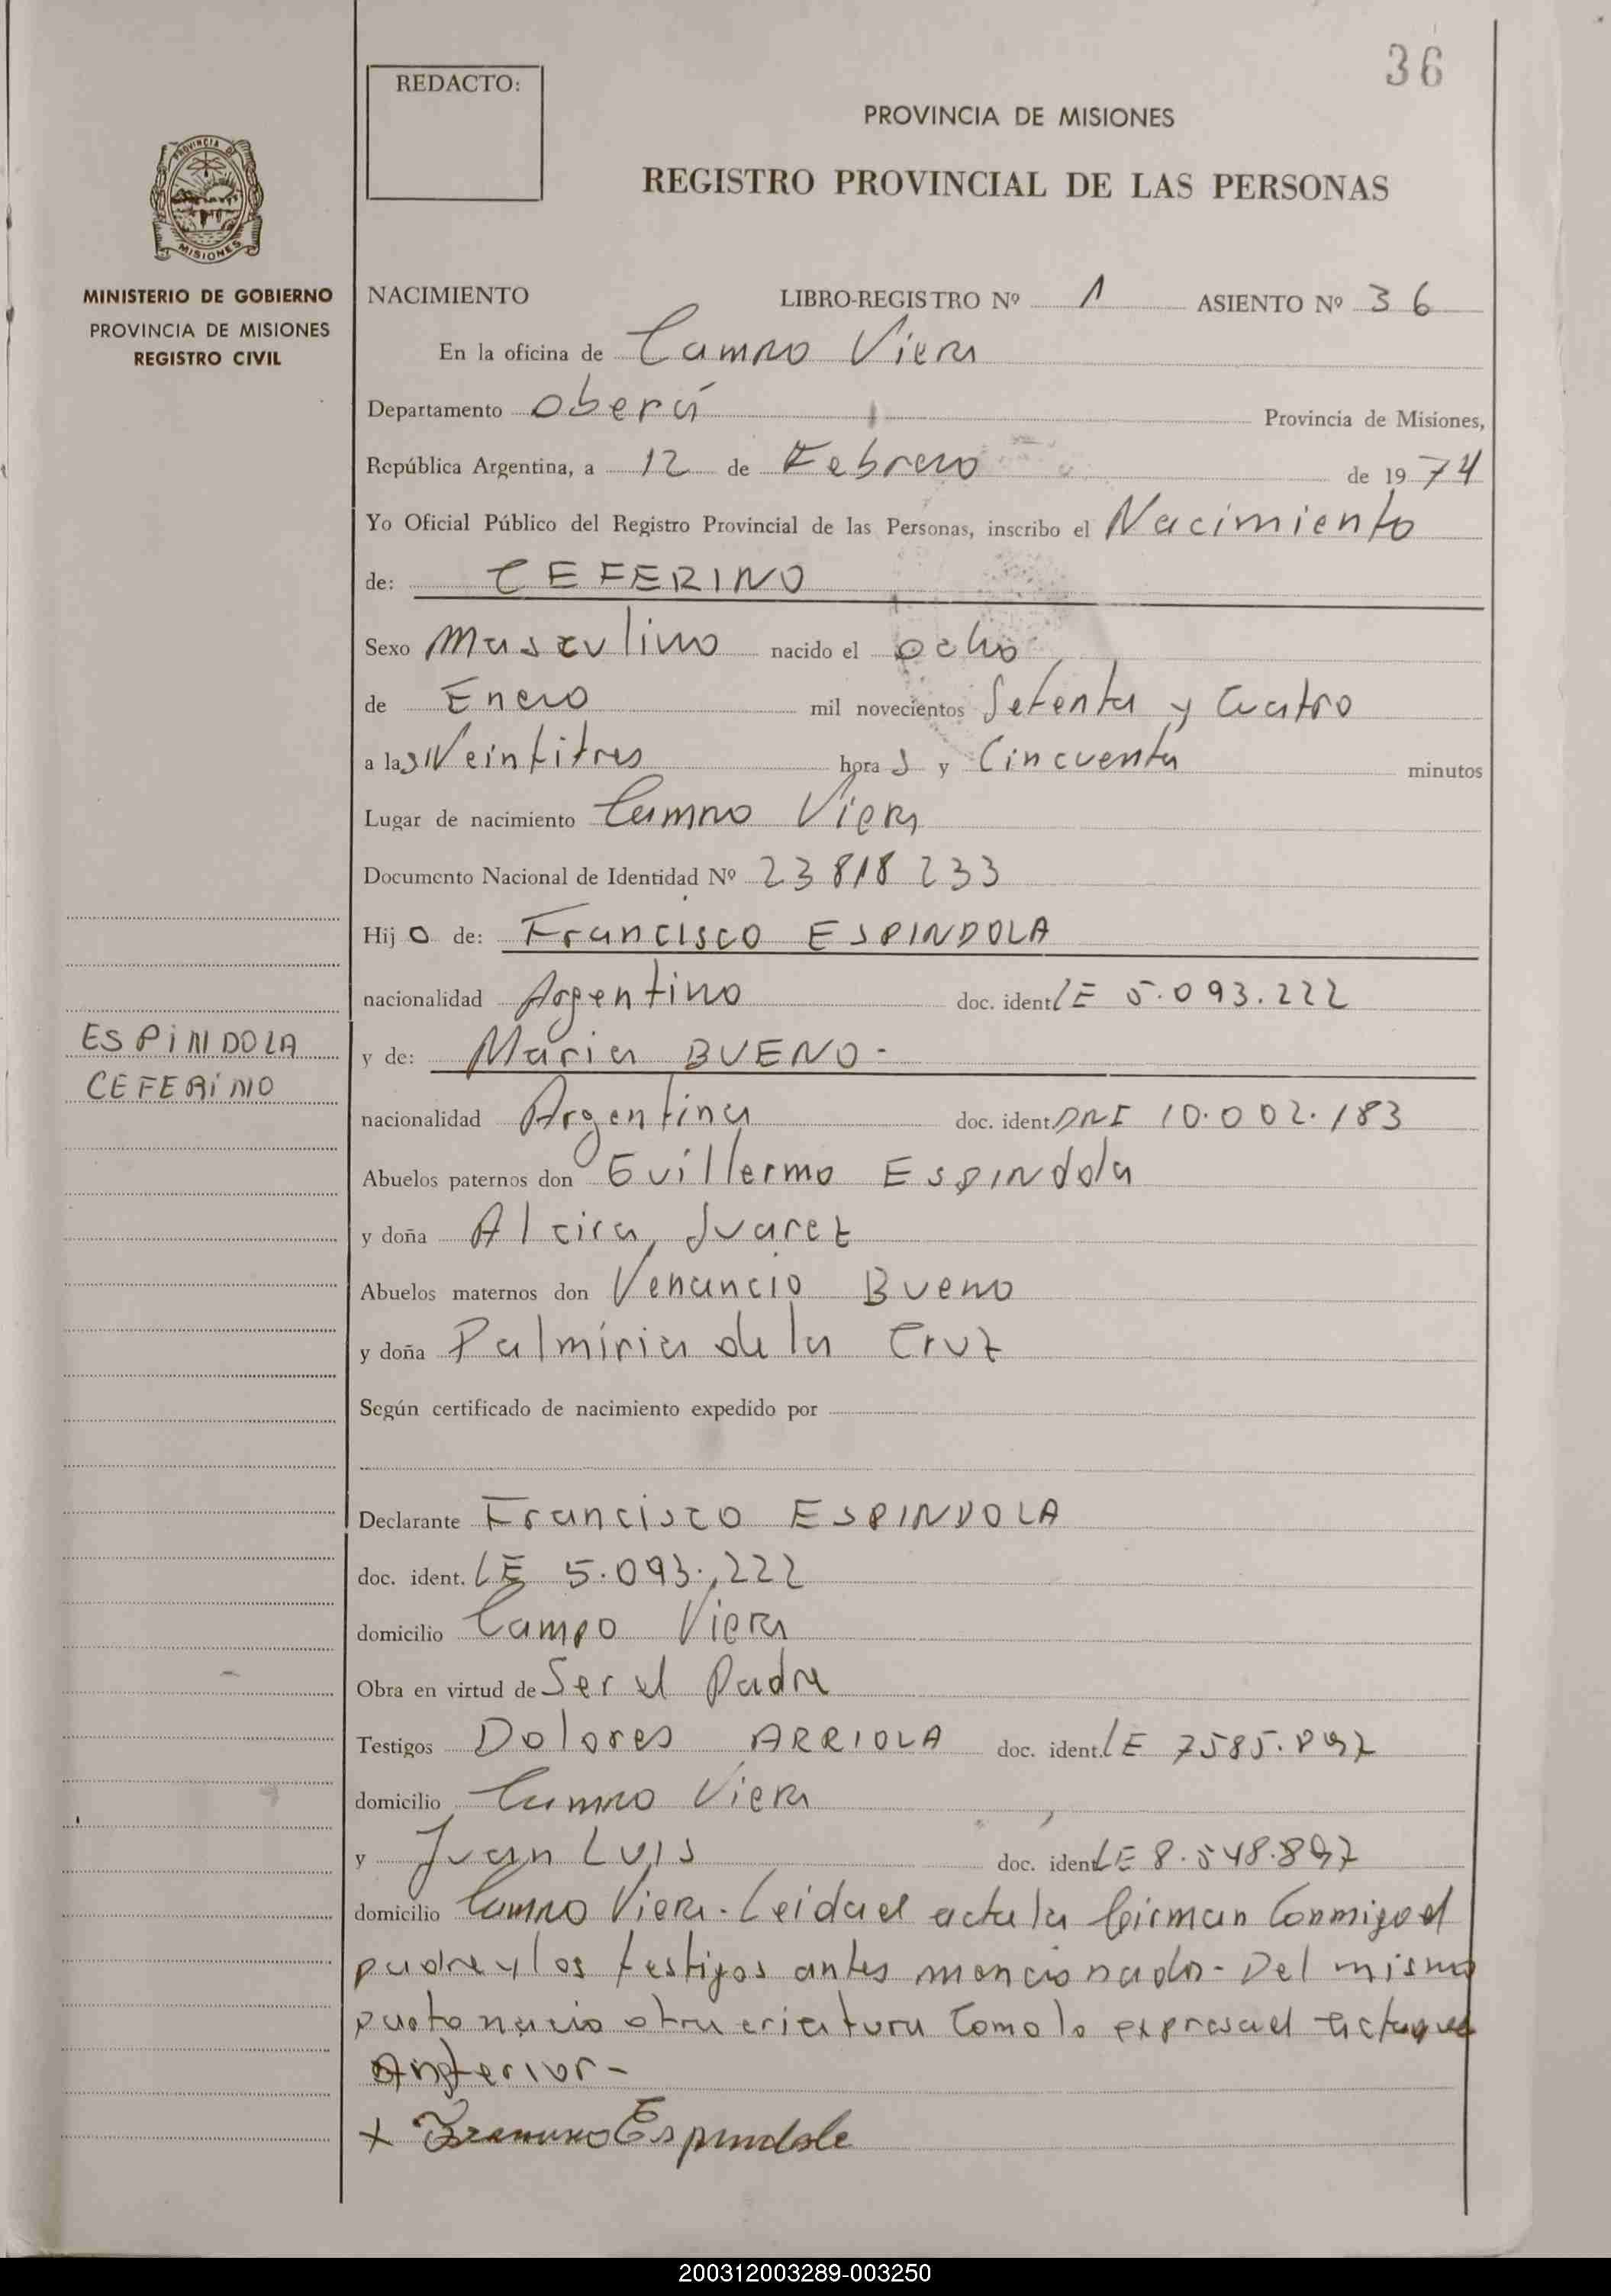 36
REDACTO:
PROVINCIA DE MISIONES
REGISTRO PROVINCIAL DE LAS PERSONAS
PROVINCIA DE
MISIONES
MINISTERIO DE GOBIERNO
PROVINCIA DE MISIONES
REGISTRO CIVIL
NACIMIENTO LIBRO-REGISTRO Nº 1 ASIENTO Nº 36
En la oficina de Campo Viera
Departamento Oberá Provincia de Misiones,
República Argentina, a 12 de Febrero de 1974
Yo Oficial Público del Registro Provincial de las Personas, inscribo el Nacimiento
de: CEFERINO
Sexo Masculino nacido el ocho
de Enero mil novecientos Setenta y Cuatro
a las Veintitres horas y Cincuenta minutos
Lugar de nacimiento Campo Viera
Documento Nacional de Identidad Nº 23818233
Hijo de: Francisco ESPINDOLA
nacionalidad Argentino doc. ident. LE 5.093.222
ESPINDOLA
CEFERINO
y de: Maria BUENO-
nacionalidad Argentina doc. ident. DNI 10.002.183
Abuelos paternos don Guillermo ESPINdola
y doña Alcira Juarez
Abuelos maternos don Venancio Bueno
y doña Palmiria de la Cruz
Según certificado de nacimiento expedido por
Declarante Francisco ESPINDOLA
doc. ident. LE 5.093.222
domicilio Campo Viera
Obra en virtud de Ser el Padre
Testigos Dolores ARRIOLA doc. ident. LE 7585.897
domicilio Campo Viera
y Juan LUIS doc. ident. LE 8.548.897
domicilio Campo Viera. Leida el acta la firman Conmigo el
padre y los testigos antes mencionado- Del mismo
parto nacio otra criatura Como lo expresa el acta
Anterior-
x Francisco Espindola
200312003289-003250